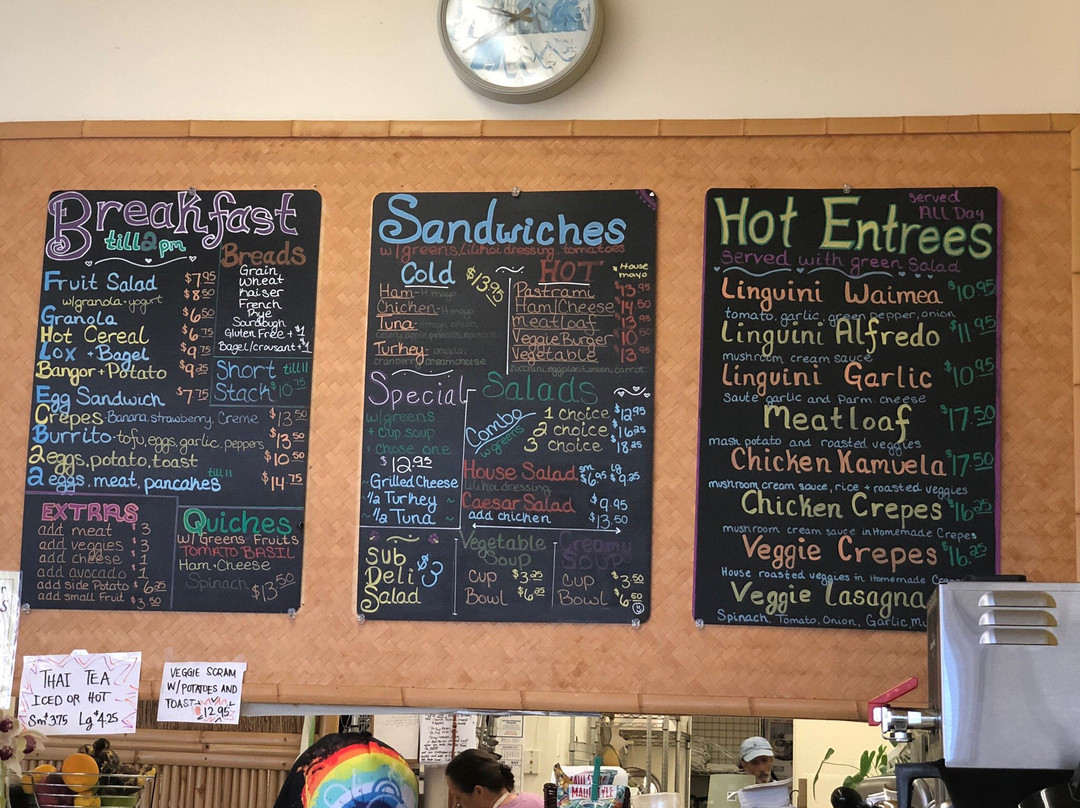 Breakfast
till 2 pm
Fruit Salad $7.95
w/granola + yogurt $8.50
Granola $6.50
Hot Cereal $6.75
Lox + Bagel $9.75
Bangor + Potato $9.25
Egg Sandwich $7.75
Crepes - Banana, strawberry, Creme $13.50
Burrito - tofu, eggs, garlic, peppers $13.50
2 eggs, potato, toast $10.50
2 eggs, meat, pancakes till 11 $14.75
Breads
Grain
Wheat
Kaiser
French
Rye
Sourdough
Gluten Free + $1
Bagel/croisant + $1
Short till 11
Stack $10.75
EXTRAS
add meat $3
add veggies $3
add cheese $1
add avocado $1
add side Potato $6.25
add small Fruit $3.50
Quiches
w/ Greens Fruits
TOMATO BASIL
Ham + Cheese
Spinach $13.50
Sandwiches
w/greens, lilikoi dressing, tomatoes
Cold $13.95
Ham - H mayo
Chicken - H mayo
Tuna -
Turkey -
cranberry creamcheese
HOT
+ House mayo
Pastrami $13.95
Ham/Cheese $14.50
Meatloaf $13.95
Veggie Burger $10.50
Vegetable $13.95
zucchini, eggplant, onion, carrot
Special
w/greens
+ cup soup
+ chose one
$12.95
- Grilled Cheese
- 1/2 Turkey ~
~ 1/2 Tuna ~
Salads
Combo
w/greens
1 choice $12.95
2 choice $16.25
3 choice $18.25
House Salad sm $6.95 lg $9.25
lilikoi dressing
Caesar Salad $9.95
add chicken $13.50
Sub
Deli $3
Salad
Vegetable
Soup
Cup $3.25
Bowl $6.25
Creamy
Soup
Cup $3.50
Bowl $6.50
Hot Entrees
Served
All Day
Served with green Salad
Linguini Waimea $10.95
tomato, garlic, green pepper, onion
Linguini Alfredo $11.95
mushroom, cream sauce
Linguini Garlic $10.95
Saute garlic and Parm. cheese
Meatloaf $17.50
mash potato and roasted veggies
Chicken Kamuela $17.50
mushroom cream sauce, rice + roasted veggies
Chicken Crepes $16.25
mushroom cream sauce in Homemade Crepes
Veggie Crepes $16.25
House roasted veggies in Homemade
Veggie Lasagna
Spinach, Tomato, Onion, Garlic,
THAI TEA
ICED OR HOT
Sm $3.75 Lg $4.25
VEGGIE SCRAM
W/POTATOES AND
TOAST
$12.95